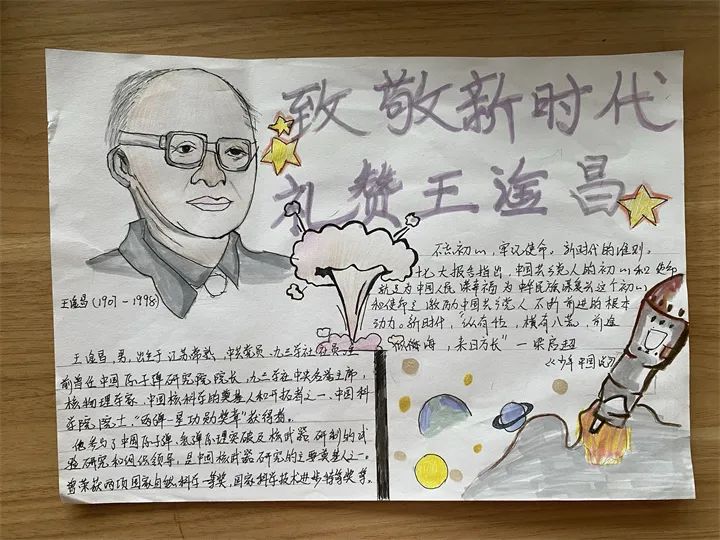 致敬新时代
礼赞王淦昌
不忘初心，牢记使命。新时代的准则。
十九大报告指出，中国共产党人的初心和使命
就是为中国人民谋幸福 为中华民族谋复兴这个初心
和使命是激励中国共产党人不断前进的根本
动力。新时代，"纵有千古，横有八荒，前途
似海，来日方长"一梁启超
《少年中国说》
王淦昌(1907-1998)
王淦昌，男，出生于江苏常熟，中共党员、九三学社
前曾任中国原子弹研究院院长，九三学社中央名誉主席，
核物理学家、中国核科学的奠基人和开拓者之一、中国科
学院院士、"两弹一星功勋奖章"获得者。
他参与了中国原子弹、氢弹原理突破及核武器研制的试
验研究和组织领导，是中国核武器研究的主要奠基人之一。
曾荣获两项国家自然科学一等奖，国家科学技术进步特等奖等。